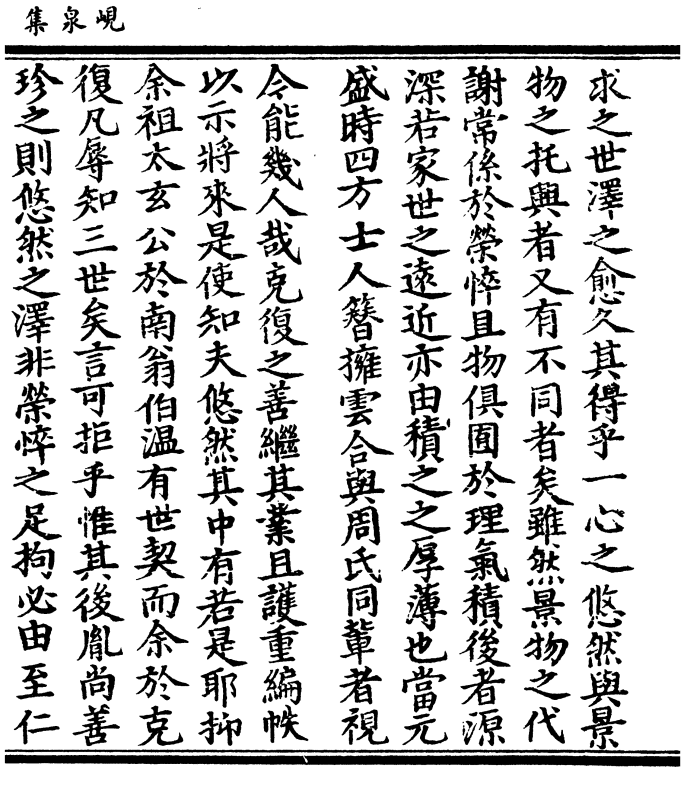 峴泉集
求之世澤之愈久其得乎一心之悠然與景
物之托興者又有不同者矣雖然景物之代
謝常係於榮悴且物俱囿於理氣積後者源
深若家世之遠近亦由積之之厚薄也當元
盛時四方士人簪擁雲合與周氏同輩者視
今能幾人哉克復之善繼其業且護重編帙
以示將來是使知夫悠然其中有若是耶抑
余祖太玄公於南翁伯溫有世契而余於克
復凡辱知三世矣言可拒乎惟其後胤尚善
珍之則悠然之澤非榮悴之足拘必由至仁